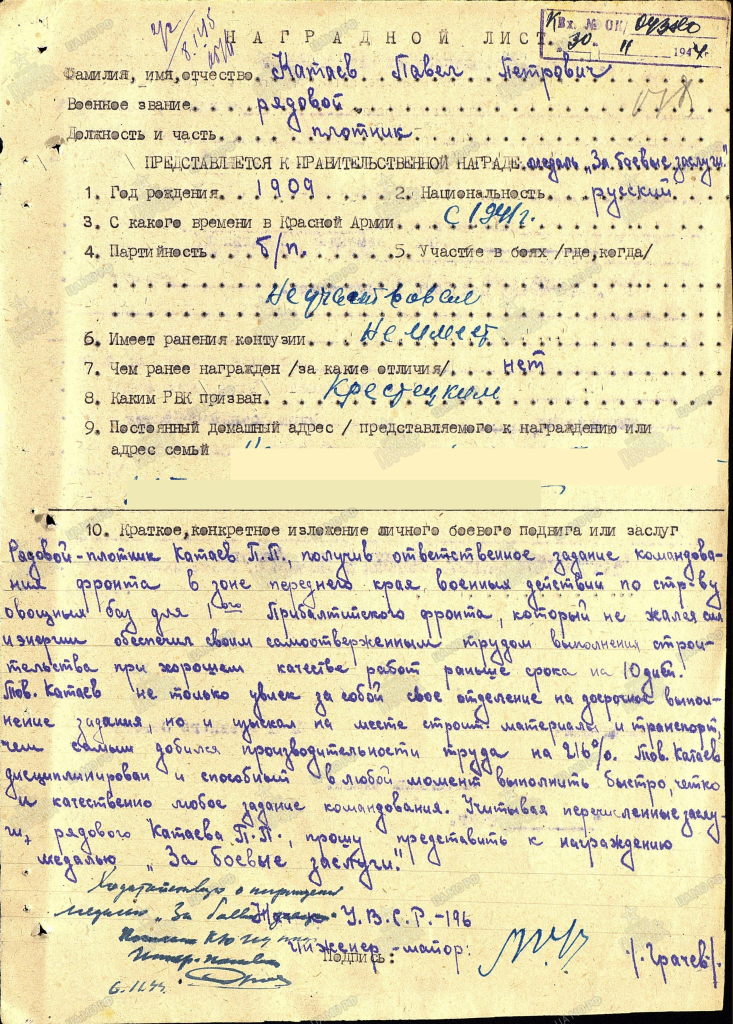 Вх. № ОК/
30. 11 1944.
НАГРАДНОЙ ЛИСТ
Фамилия, имя, отчество Катаев Павел Петрович
Военное звание рядовой
Должность и часть плотник
ПРЕДСТАВЛЯЕТСЯ К ПРАВИТЕЛЬСТВЕННОЙ НАГРАДЕ медаль „За боевые заслуги."
1. Год рождения 1909 2. Национальность русский
3. С какого времени в Красной Армии с 1941г.
4. Партийность б/п. 5. Участие в боях /где, когда/
Не участвовал
6. Имеет ранения контузии Не имеет
7. Чем ранее награжден /за какие отличия/ нет
8. Каким РВК призван Крестецким
9. Постоянный домашний адрес / представляемого к награждению или
адрес семьи
10. Краткое, конкретное изложение личного боевого подвига или заслуг
Рядовой-плотник Катаев П.П., получив ответственное задание командова-
ния фронта в зоне переднего края военных действий по стр-ву
овощных баз для 1ого Прибалтийского фронта, который не жалея сил
и энергии обеспечил своим самоотверженным трудом выполнения строи-
тельства при хорошем качестве работ раньше срока на 10 дней.
Тов. Катаев не только увлек за собой свое отделение на досрочное выпол-
нение задания, но и изыскал на месте строит. материалы и транспорт,
чем самым добился производительности труда на 216%. Тов. Катаев
дисциплинирован и способный в любой момент выполнить быстро, четко
и качественно любое задание командования. Учитывая перечисленные заслу-
ги, рядового Катаева П.П., прошу представить к награждению
медалью „За боевые заслуги."
Ходатайствую о награждении
медалью „За боевые У.В.С.Р.-196
Инженер-майор:
Подпись: /Грачев/.
6.11.44.